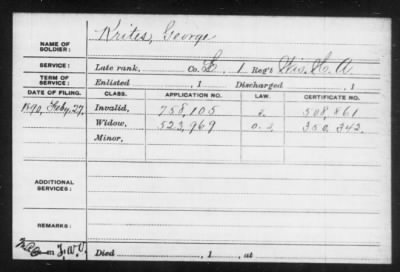 NAME OF SOLDIER: Krites, George
SERVICE: Late rank, Co. L, 1 Reg't Wis. H. A.
TERM OF SERVICE: Enlisted , 1 Discharged , 1
DATE OF FILING. CLASS. APPLICATION NO. LAW. CERTIFICATE NO.
1890, Feby. 27. Invalid, 758,105 508,861
Widow, 523,969 350,342.
Minor,
ADDITIONAL SERVICES:
REMARKS:
Died , 1 , at